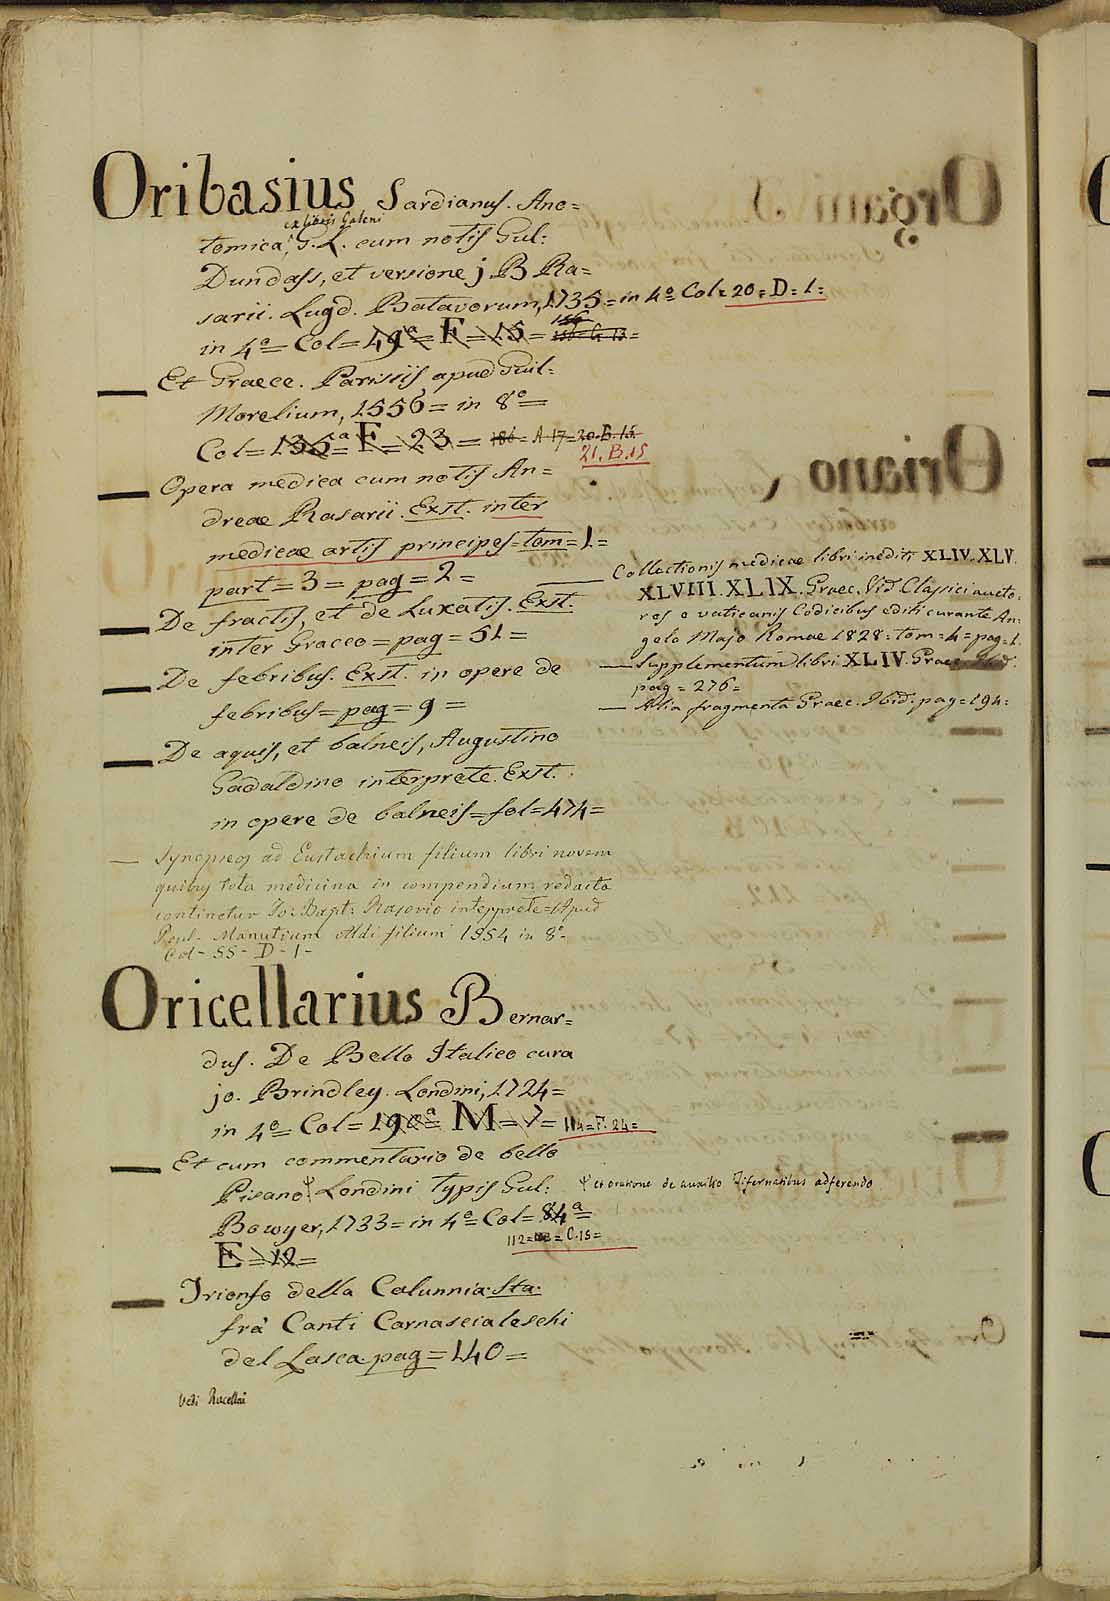 Oribasius Sardianus. Ano=
ex libris Galeni
tomica, G. L. cum notis Gul:
Dundass, et versione j. B. Ra=
sarii. Lugd. Batavorum, 1735 = in 4º Col = 20 = D = 1 =
in 4º = Col = 49ª = F = 15 = 156 = G 13 =
Et Graece. Parisiis apud Guil:
Morelium, 1556 = in 8º =
Col = 136ª = F = 23 = 186 = A 17 = 20. B. 15.
21. B. 15
Opera medica cum notis An=
dreae Rasarii. Exst. inter
medicae artis principes = tom = 1 =
part = 3 = pag = 2 =
De fractis, et de Luxatis. Exst.
inter Graeco = pag = 51 =
De febribus. Exst. in opere de
febribus = pag = 9 =
De aquis, et balneis, Augustino
Gadaldino interprete. Exst.
in opere de balneis = fol = 474 =
Synopseos ad Eustachium filium libri novem
quibus tota medicina in compendium redacta
continetur Jo: Bapt: Rasorio interprete = Apud
Paul. Manutium Aldi filium 1554 in 8º -
Col - 55 - D - 1 -
Collectionis medicae libri inediti XLIV. XLV.
XLVIII. XLIX. Graec. Vid Classici aucto:
res e vaticanis Codicibus editi curante An:
gelo Majo Romae 1828 = tom = 4 = pag = 1.
Supplementum libri XLIV. Graec. Ibid:
pag = 276 =
Alia fragmenta Graec. Ibid. pag = 194 =
Oricellarius Bernar=
dus. De Bello Italico cura
jo. Brindley. Londini, 1724 =
in 4º = Col = 190ª = M = 7 = 114 = F. 24 =
Et cum commentario de bello
Pisano Londini typis Gul: et oratione de auxilio Tifernatibus adferendo
Bowyer, 1733 = in 4º = Col = 84ª =
E = 12 = 112 = = C. 15 =
Trionfo della Calunnia. Sta.
frà Canti Carnascialeschi
del Lasca. pag = 140 =
Vedi Rucellai